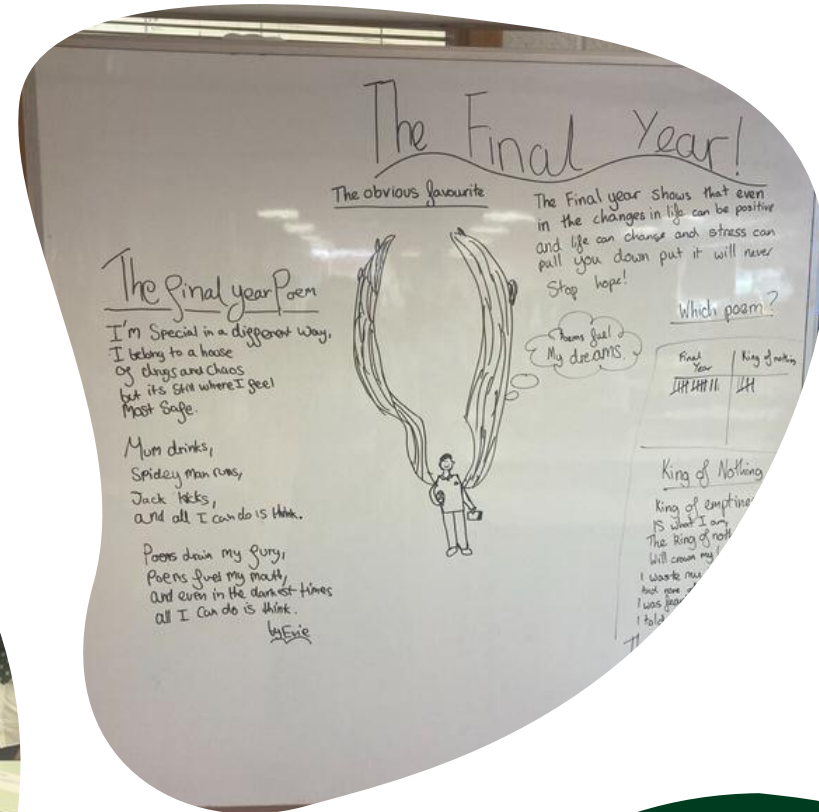 The Final Year!
The obvious favourite
The Final year shows that even
in the changes in life can be positive
and life can change and stress can
pull you down put it will never
Stop hope!
The final year Poem
I'm Special in a different way,
I belong to a house
of drugs and chaos
but its still where I feel
Most Safe.
Mum drinks,
Spidey man runs,
Jack kicks,
and all I can do is think.
Poems drain my fury,
Poems fuel my mouth,
and even in the darkest times
all I can do is think.
by Evie
Poems fuel
My dreams.
Which poem?
Final Year
King of nothin
King of Nothing
King of emptine
is what I am,
The King of noth
Will crown my
I waste my
I was
I told